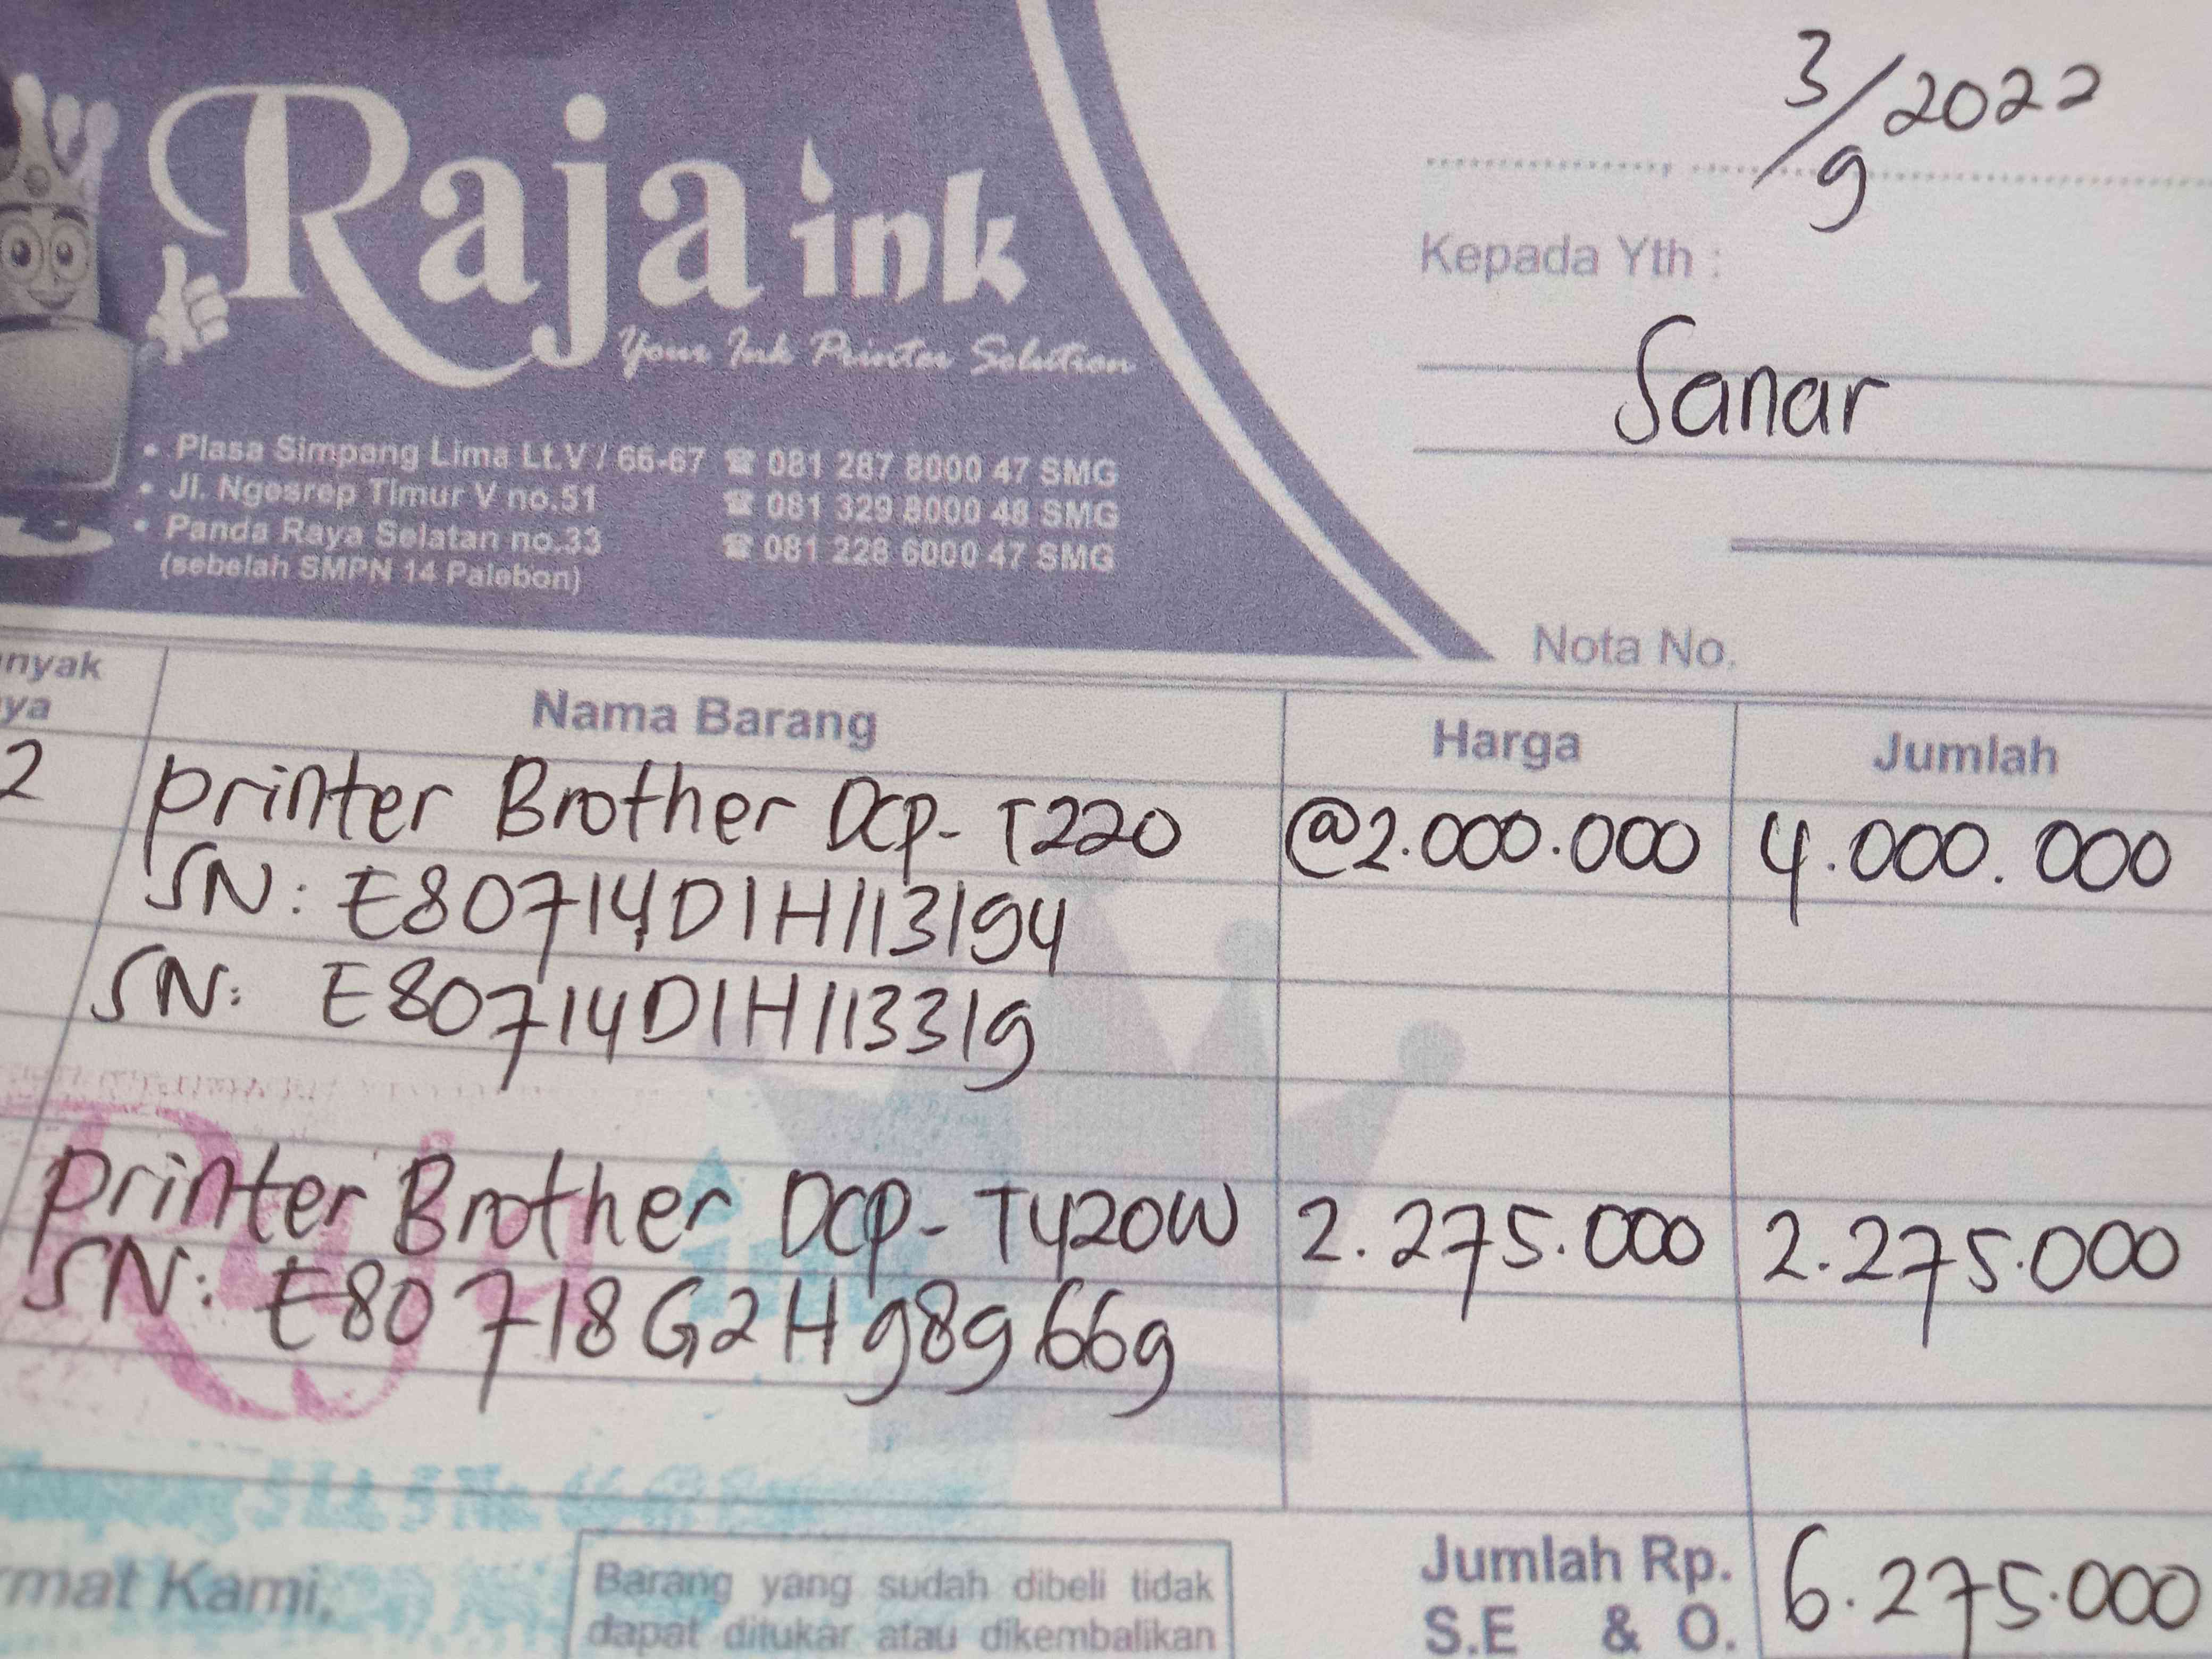 Raja ink
Your Ink Printer Solution
• Plasa Simpang Lima Lt.V / 66-67 ☎ 081 287 8000 47 SMG
• Jl. Ngesrep Timur V no.51 ☎ 081 329 8000 48 SMG
• Panda Raya Selatan no.33 ☎ 081 228 6000 47 SMG
(sebelah SMPN 14 Palebon)
3/9 2022
Kepada Yth :
Sanar
Nota No.
anyak
ya
Nama Barang Harga Jumlah
2 printer Brother DCP- T220 @2.000.000 4.000.000
SN: E80714D1H113194
SN: E80714D1H113319
printer Brother DCP- T420W 2.275.000 2.275.000
SN: E80718G2H989669
rmat Kami,
Barang yang sudah dibeli tidak
dapat ditukar atau dikembalikan
Jumlah Rp. 6.275.000
S.E & O.